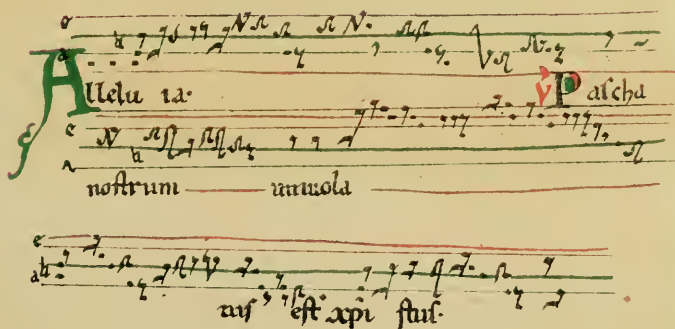 Allelu ia. V Pascha
nostrum immola
tus est xpi stus.